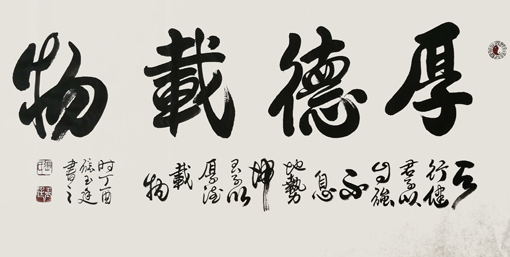 厚德載物
天行健君子以自強不息地勢坤君子以厚德載物
时丁酉
張玉庭
書之